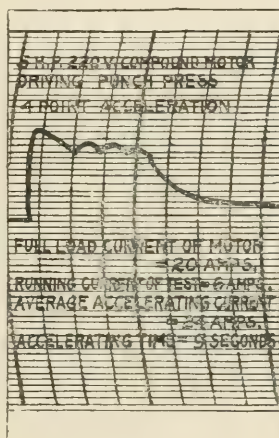 5 H.P. 220 V. COMPOUND MOTOR
DRIVING PUNCH PRESS
4 POINT ACCELERATION
FULL LOAD CURRENT OF MOTOR
=20 AMPS.
RUNNING CURRENT OF TEST=6 AMPS.
AVERAGE ACCELERATING CURRENT
=24 AMPS.
ACCELERATING TIME= 5 SECONDS